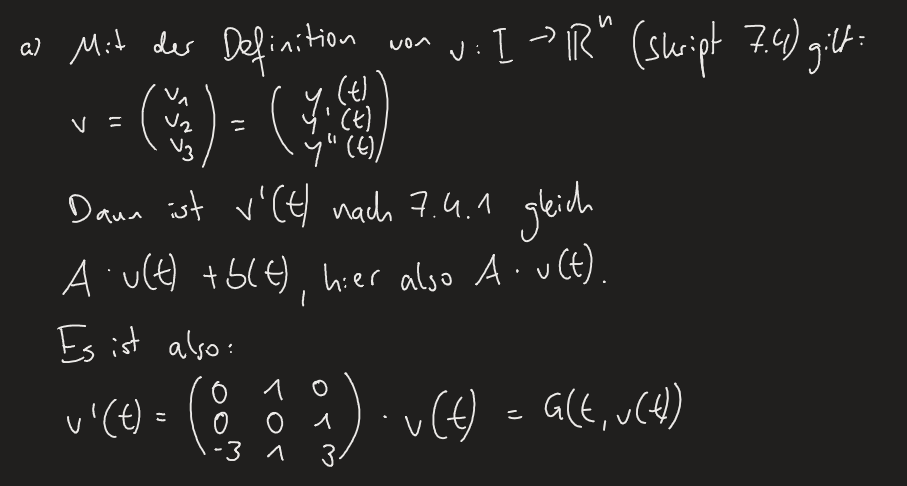 a) Mit der Definition von v: I → ℝⁿ (Skript 7.4) gilt:
v = (v₁ v₂ v₃) = (y(t) y'(t) y''(t))
Dann ist v'(t) nach 7.4.1 gleich
A · v(t) + b(t), hier also A · v(t).
Es ist also:
v'(t) = (0 1 0; 0 0 1; -3 1 3) · v(t) = G(t, v(t))